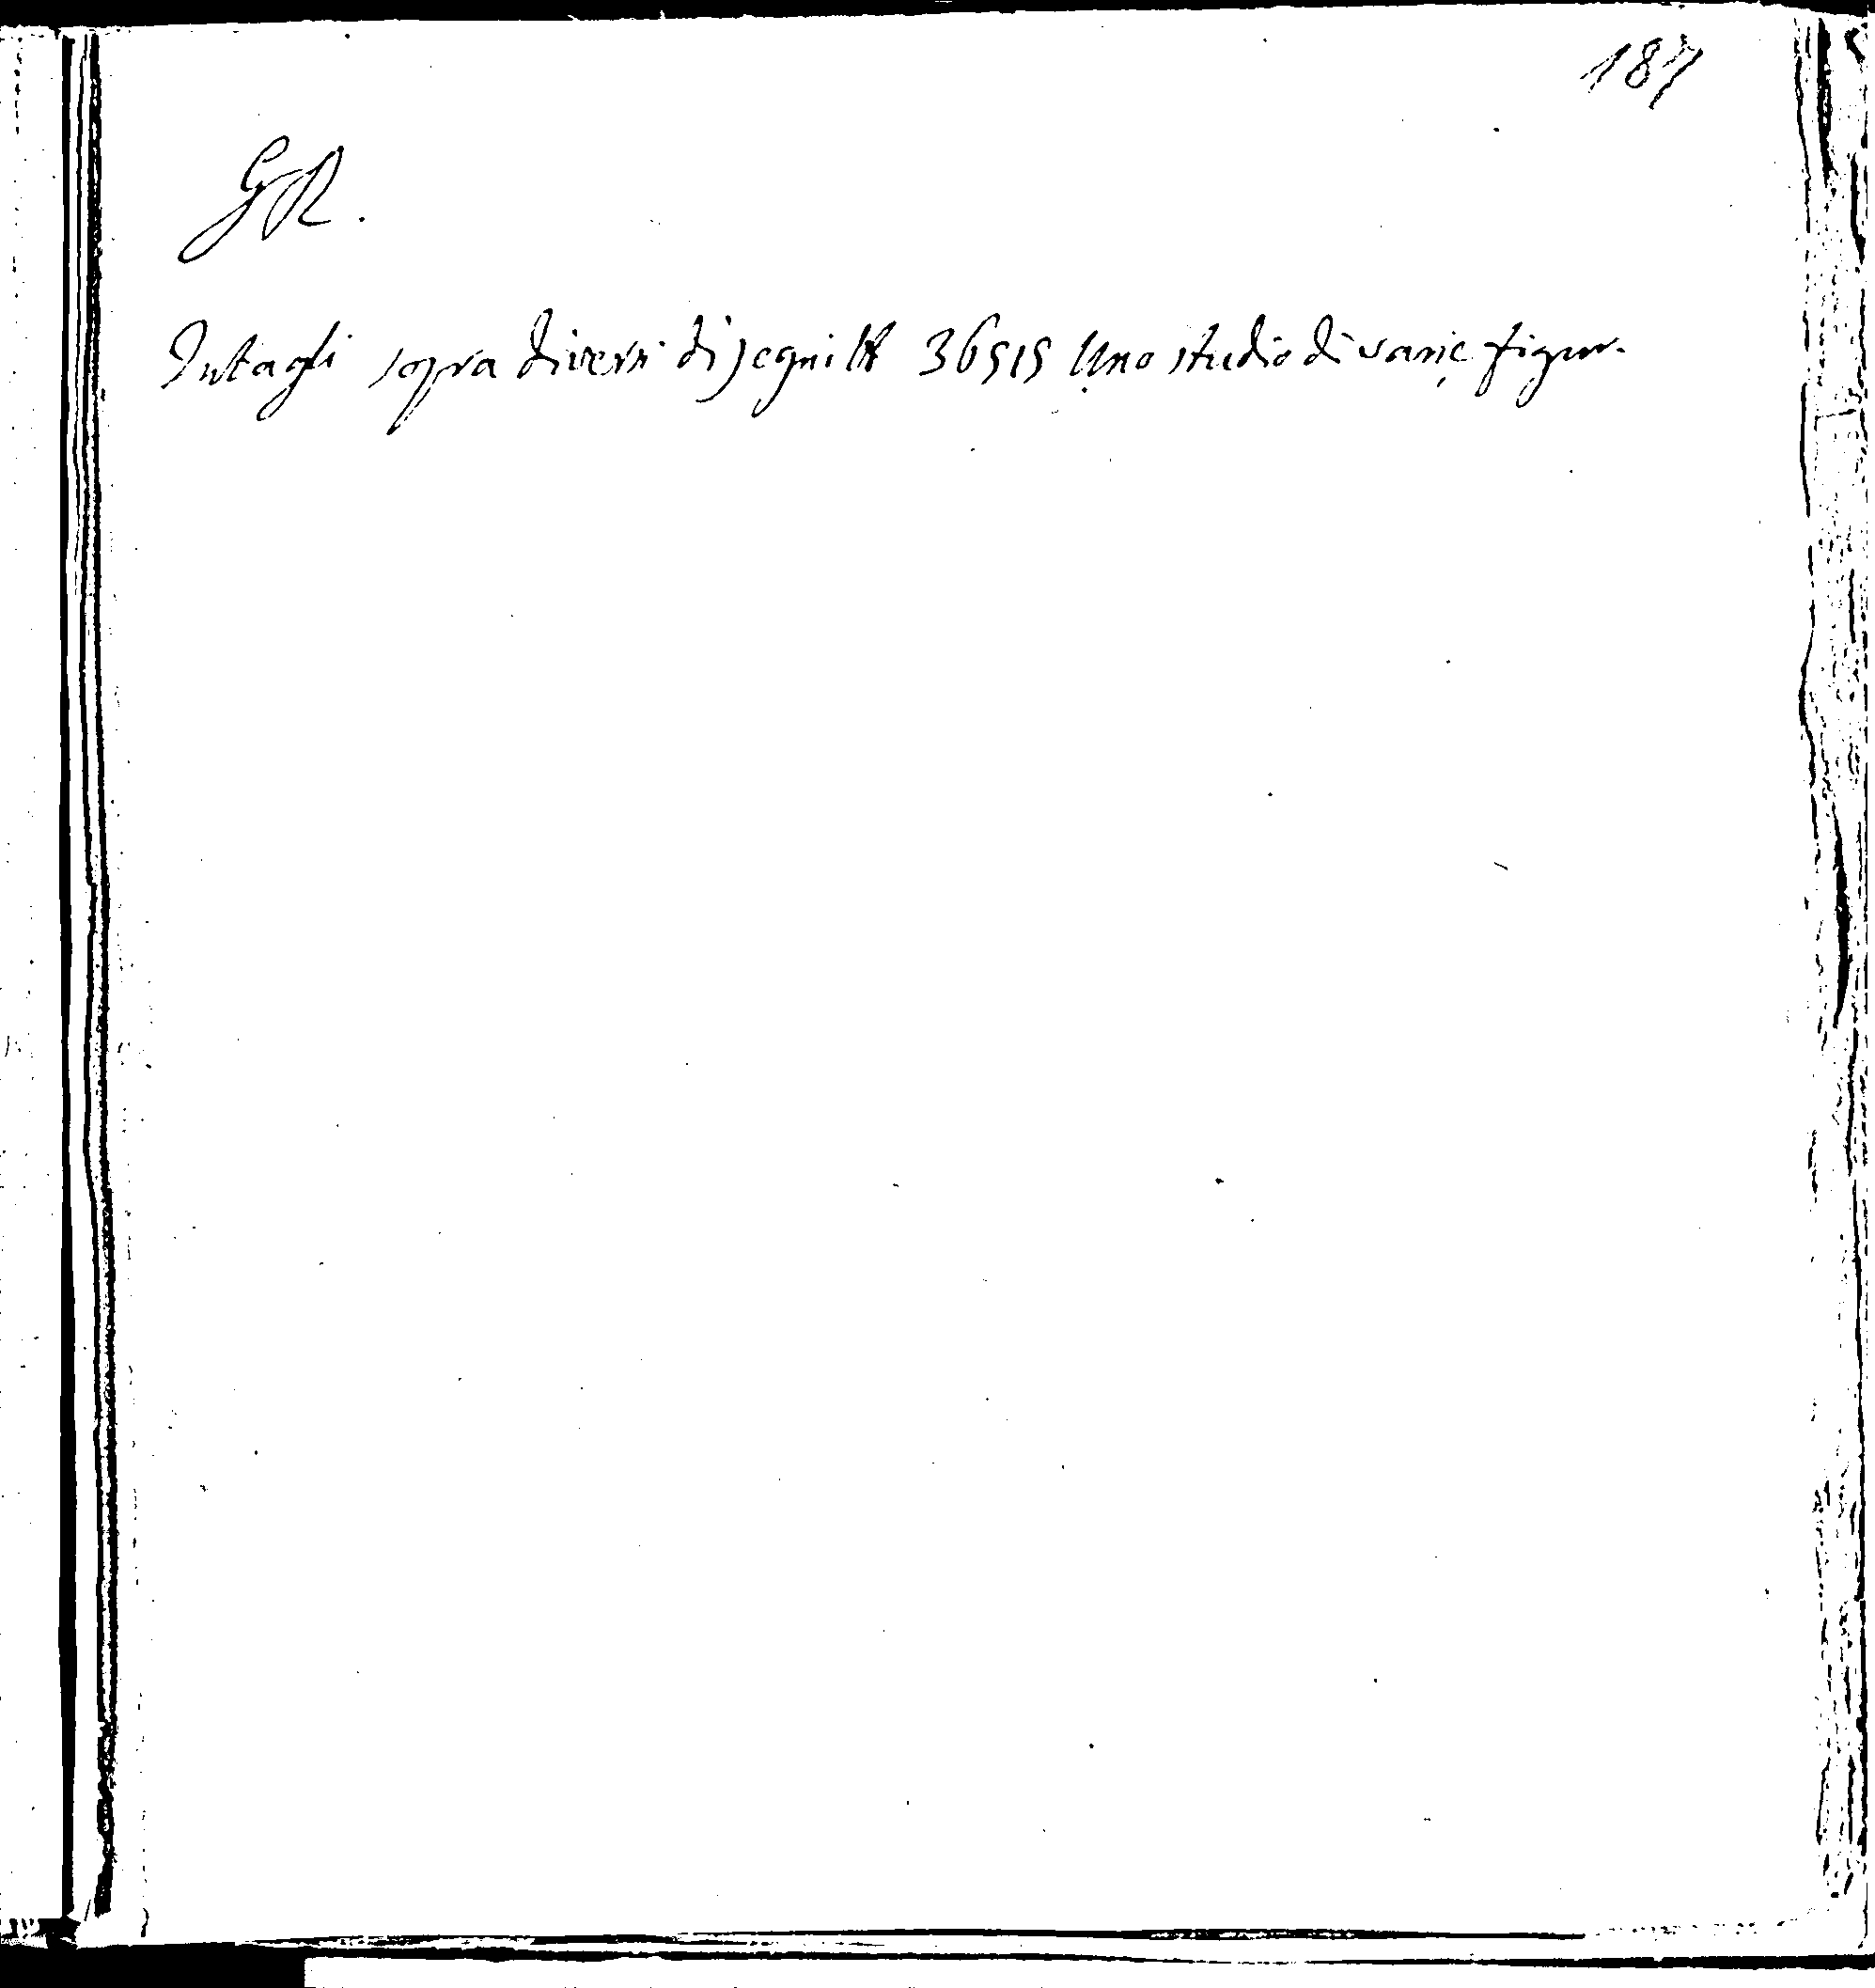 187
GR.
Intagli sopra diversi disegni lt 36515 Uno studio di varie figur.